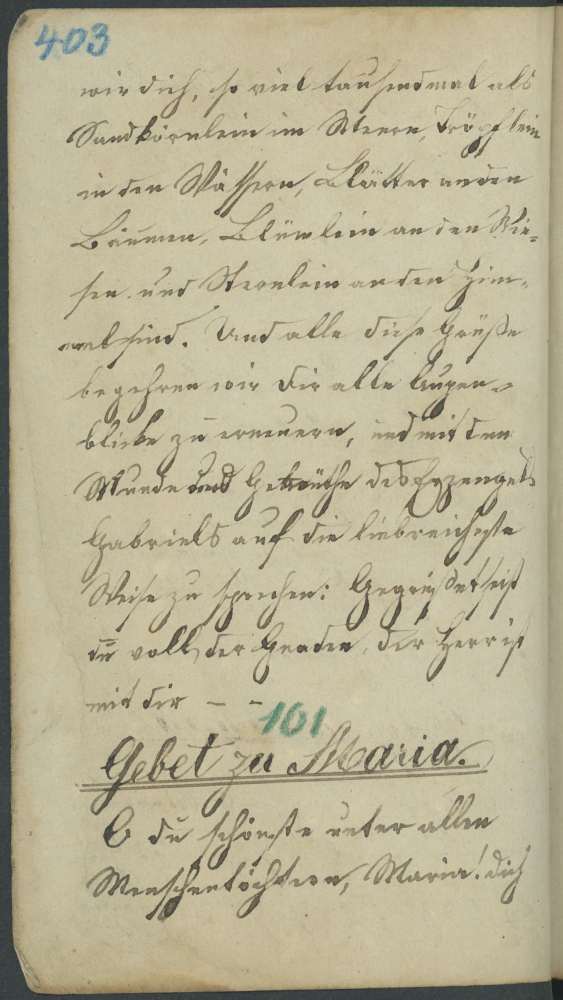 403
wir dich, so viel tausendmal als
Sandkörnlein im Meere, Tröpflein
in den Wässern, Blätter an den
Bäumen, Blümlein an den Wie=
sen und Sternlein an den Him=
mel sind. Und alle diese Grüße
begehren wir dir alle Augen=
blicke zu erneuern, und mit dem
Munde und Gemüthe des Erzengels
Gabriels auf die liebreichste
Weise zu sprechen: Gegrüßet seist
du voll der Gnaden, der Herr ist
mit dir – –
101
Gebet zu Maria.
O du schönste unter allen
Menschentöchtern, Maria! dich